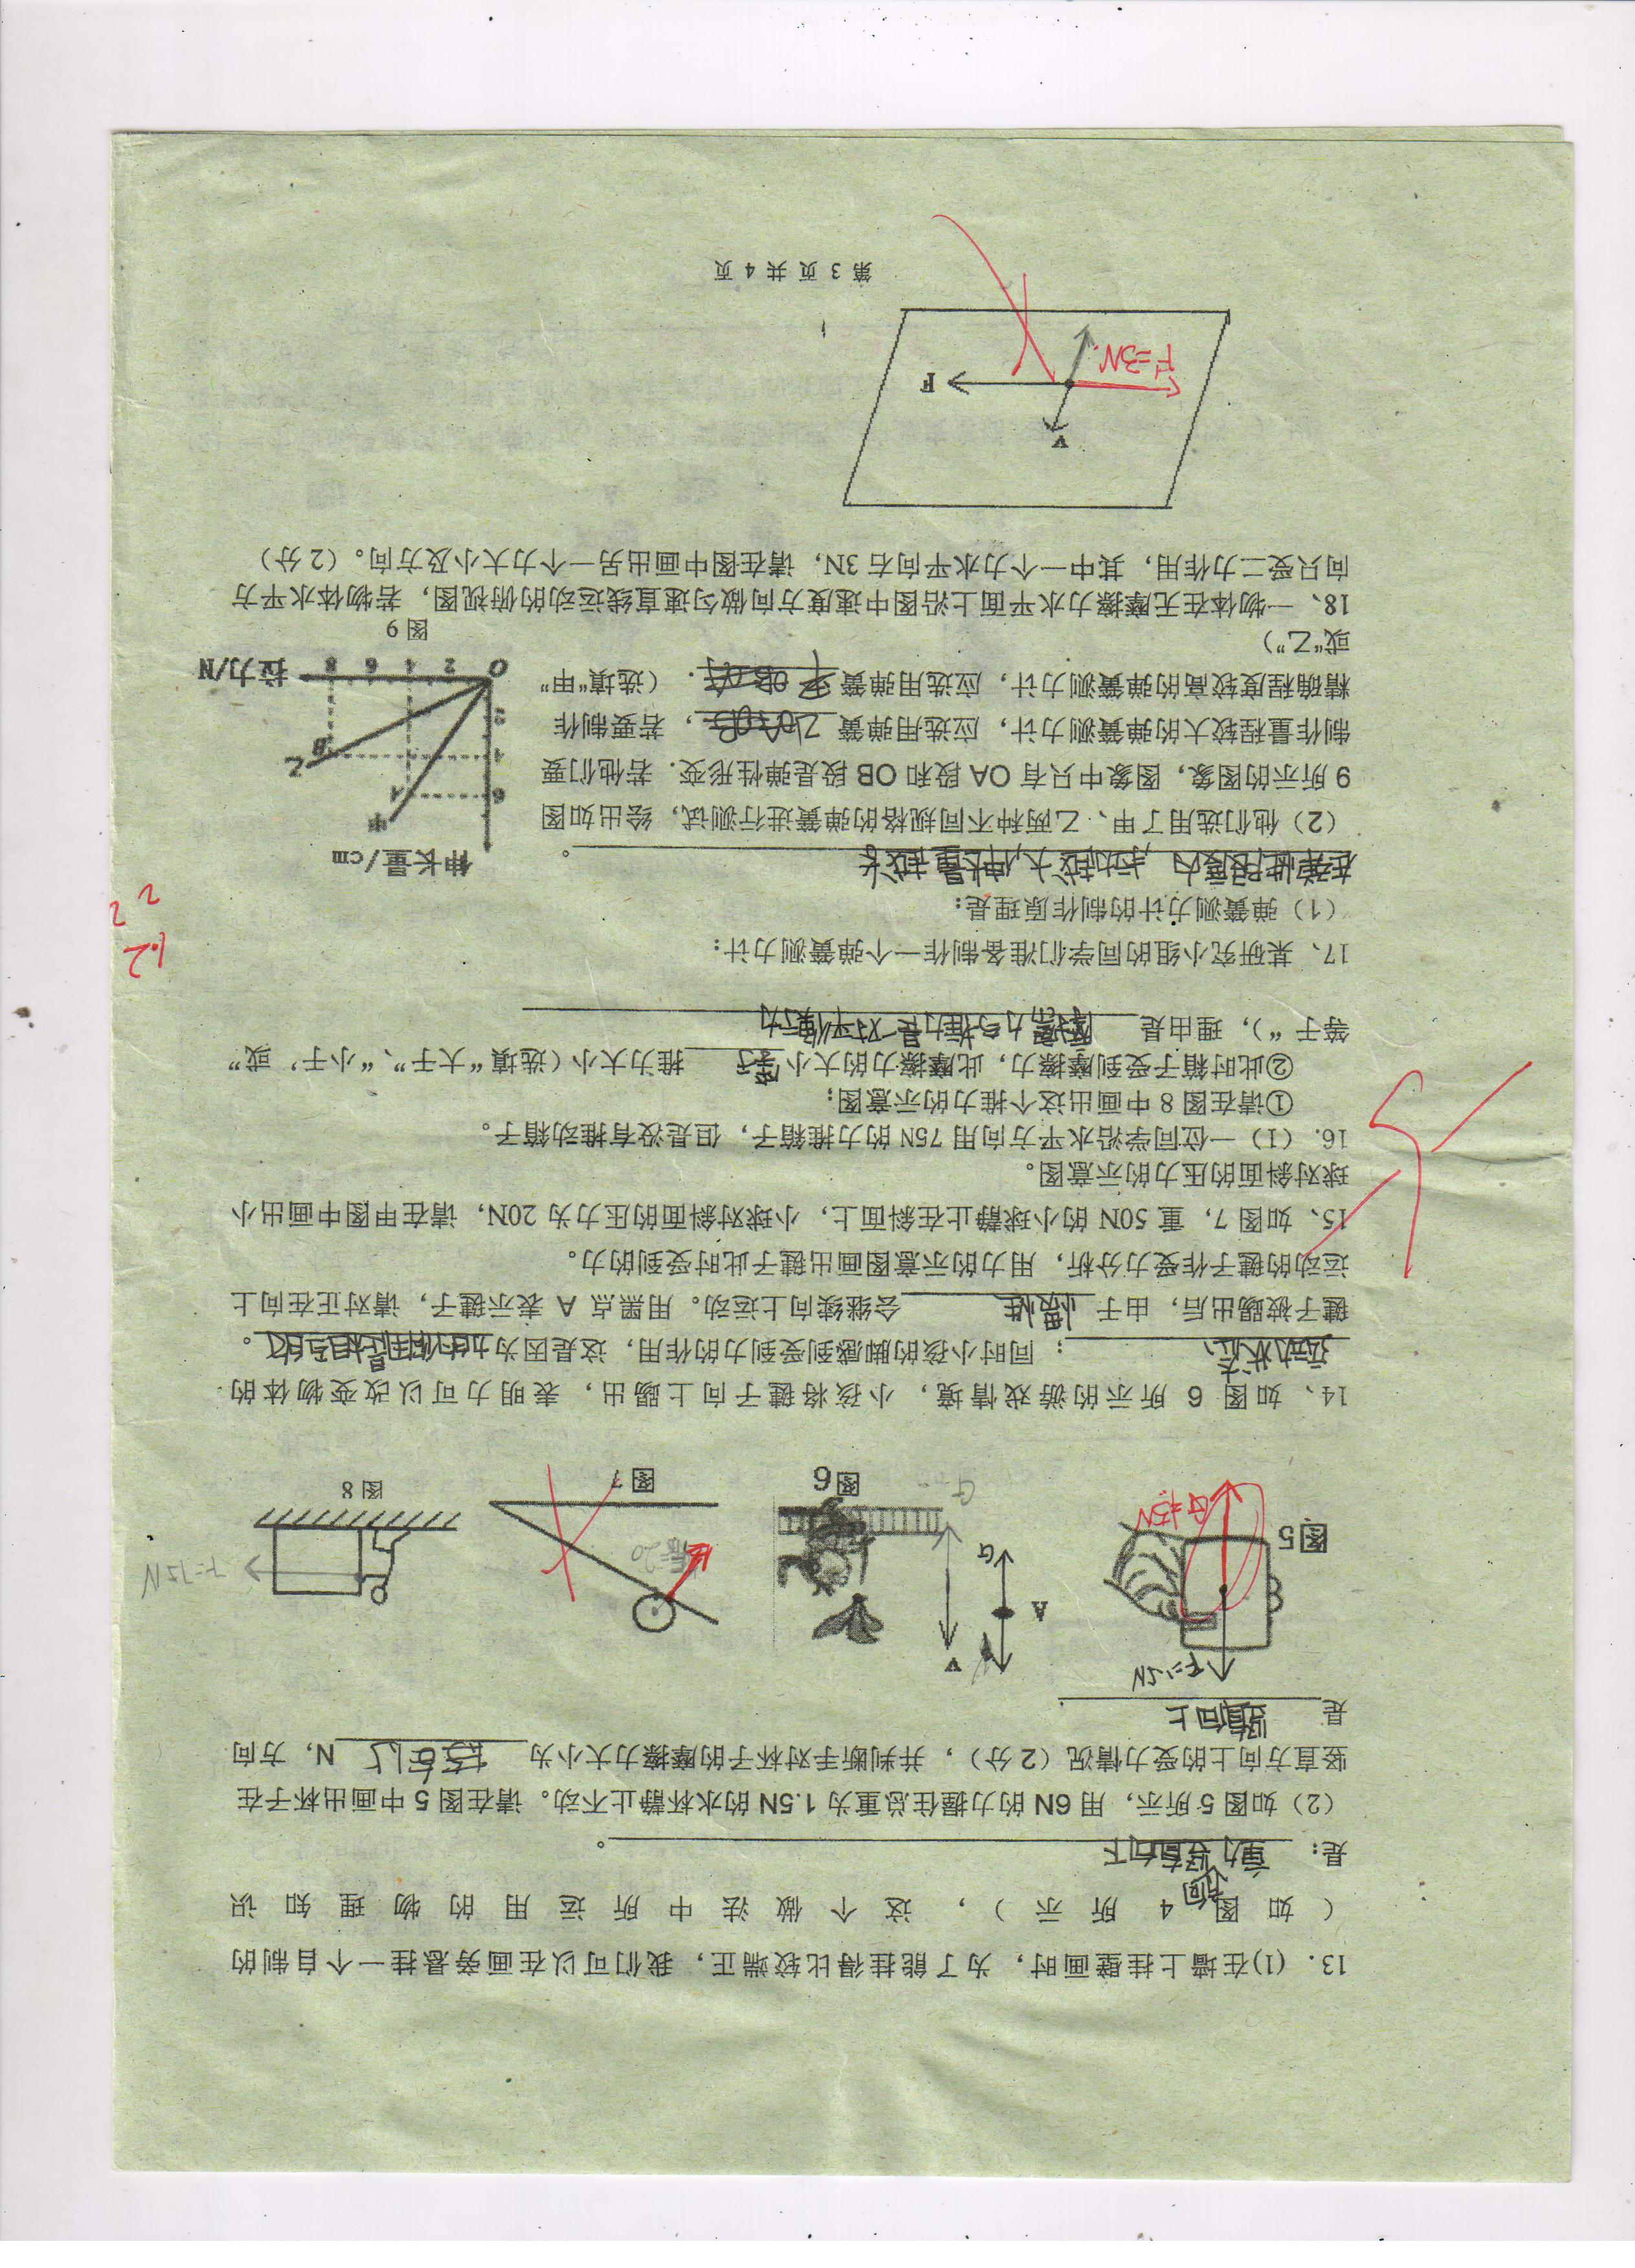 13. (1)在墙上挂壁画时，为了能挂得比较端正，我们可以在画旁悬挂一个自制的
（如图4所示），这个做法中所运用的物理知识
是：重力方向竖直向下。
（2）如图5所示，用6N的力握住总重为1.5N的水杯静止不动。请在图5中画出杯子在
竖直方向上的受力情况（2分），并判断手对杯子的摩擦力大小为 1.5 N，方向
是 竖直向上
F=1.5N
G=1.5N
图5
A
G
v
G
图6
F压=20
图7
F=75N
图8
14、如图 6 所示的游戏情境，小孩将毽子向上踢出，表明力可以改变物体的
运动状态；同时小孩的脚感到受到力的作用，这是因为力的作用是相互的。
毽子被踢出后，由于 惯性 会继续向上运动。用黑点 A 表示毽子，请对正在向上
运动的毽子作受力分析，用力的示意图画出毽子此时受到的力。
15、如图 7，重 50N 的小球静止在斜面上，小球对斜面的压力为 20N，请在甲图中画出小
球对斜面的压力的示意图。
16. （1）一位同学沿水平方向用 75N 的力推箱子，但是没有推动箱子。
①请在图 8 中画出这个推力的示意图；
②此时箱子受到摩擦力，此摩擦力的大小 等于 推力大小（选填“大于”、“小于，或”
等于“），理由是 摩擦力与推力是一对平衡力
17、某研究小组的同学们准备制作一个弹簧测力计：
1.2
2 2
（1）弹簧测力计的制作原理是：
在弹性限度内 拉力越大，伸长量越长。
（2）他们选用了甲、乙两种不同规格的弹簧进行测试，绘出如图
9 所示的图象，图象中只有 OA 段和 OB 段是弹性形变．若他们要
制作量程较大的弹簧测力计，应选用弹簧 乙，若要制作
精确程度较高的弹簧测力计，应选用弹簧 甲．（选填“甲”
或“乙”）
伸长量/cm
甲
6 A
4 B 乙
2
O 2 4 6 8 拉力/N
图 9
18、一物体在无摩擦力水平面上沿图中速度方向做匀速直线运动的俯视图，若物体水平方
向只受二力作用，其中一个力水平向右 3N，请在图中画出另一个力大小及方向。（2 分）
v
F=3N
F
第 3 页 共 4 页